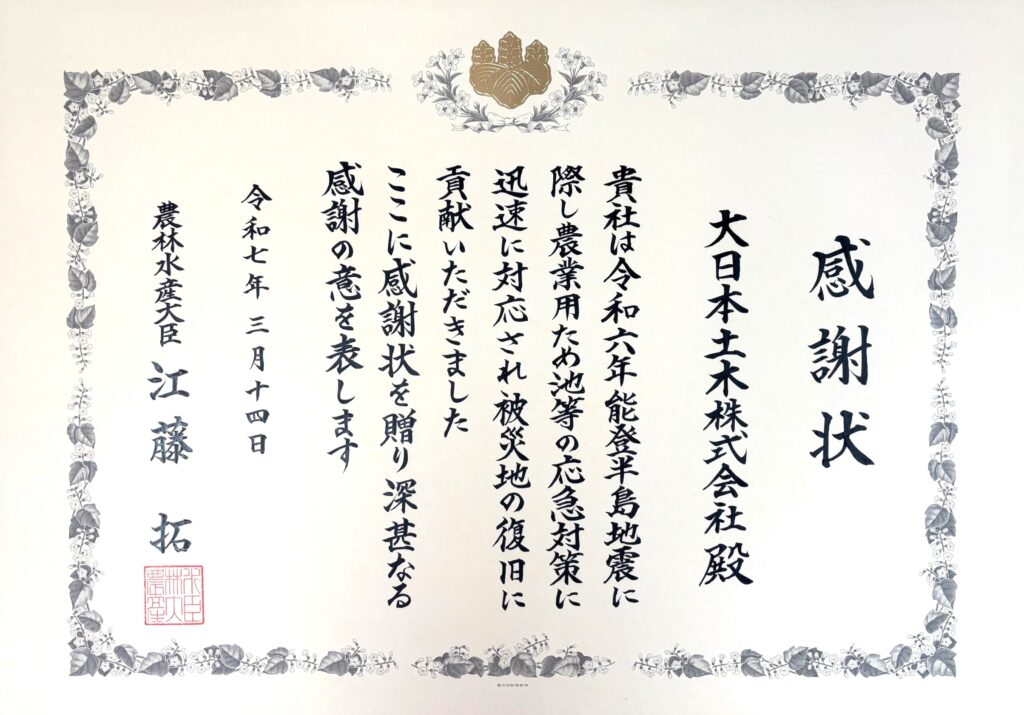 感謝状
大日本土木株式会社殿
貴社は令和六年能登半島地震に
際し農業用ため池等の応急対策に
迅速に対応され被災地の復旧に
貢献いただきました
ここに感謝状を贈り深甚なる
感謝の意を表します
令和七年三月十四日
農林水産大臣 江藤 拓